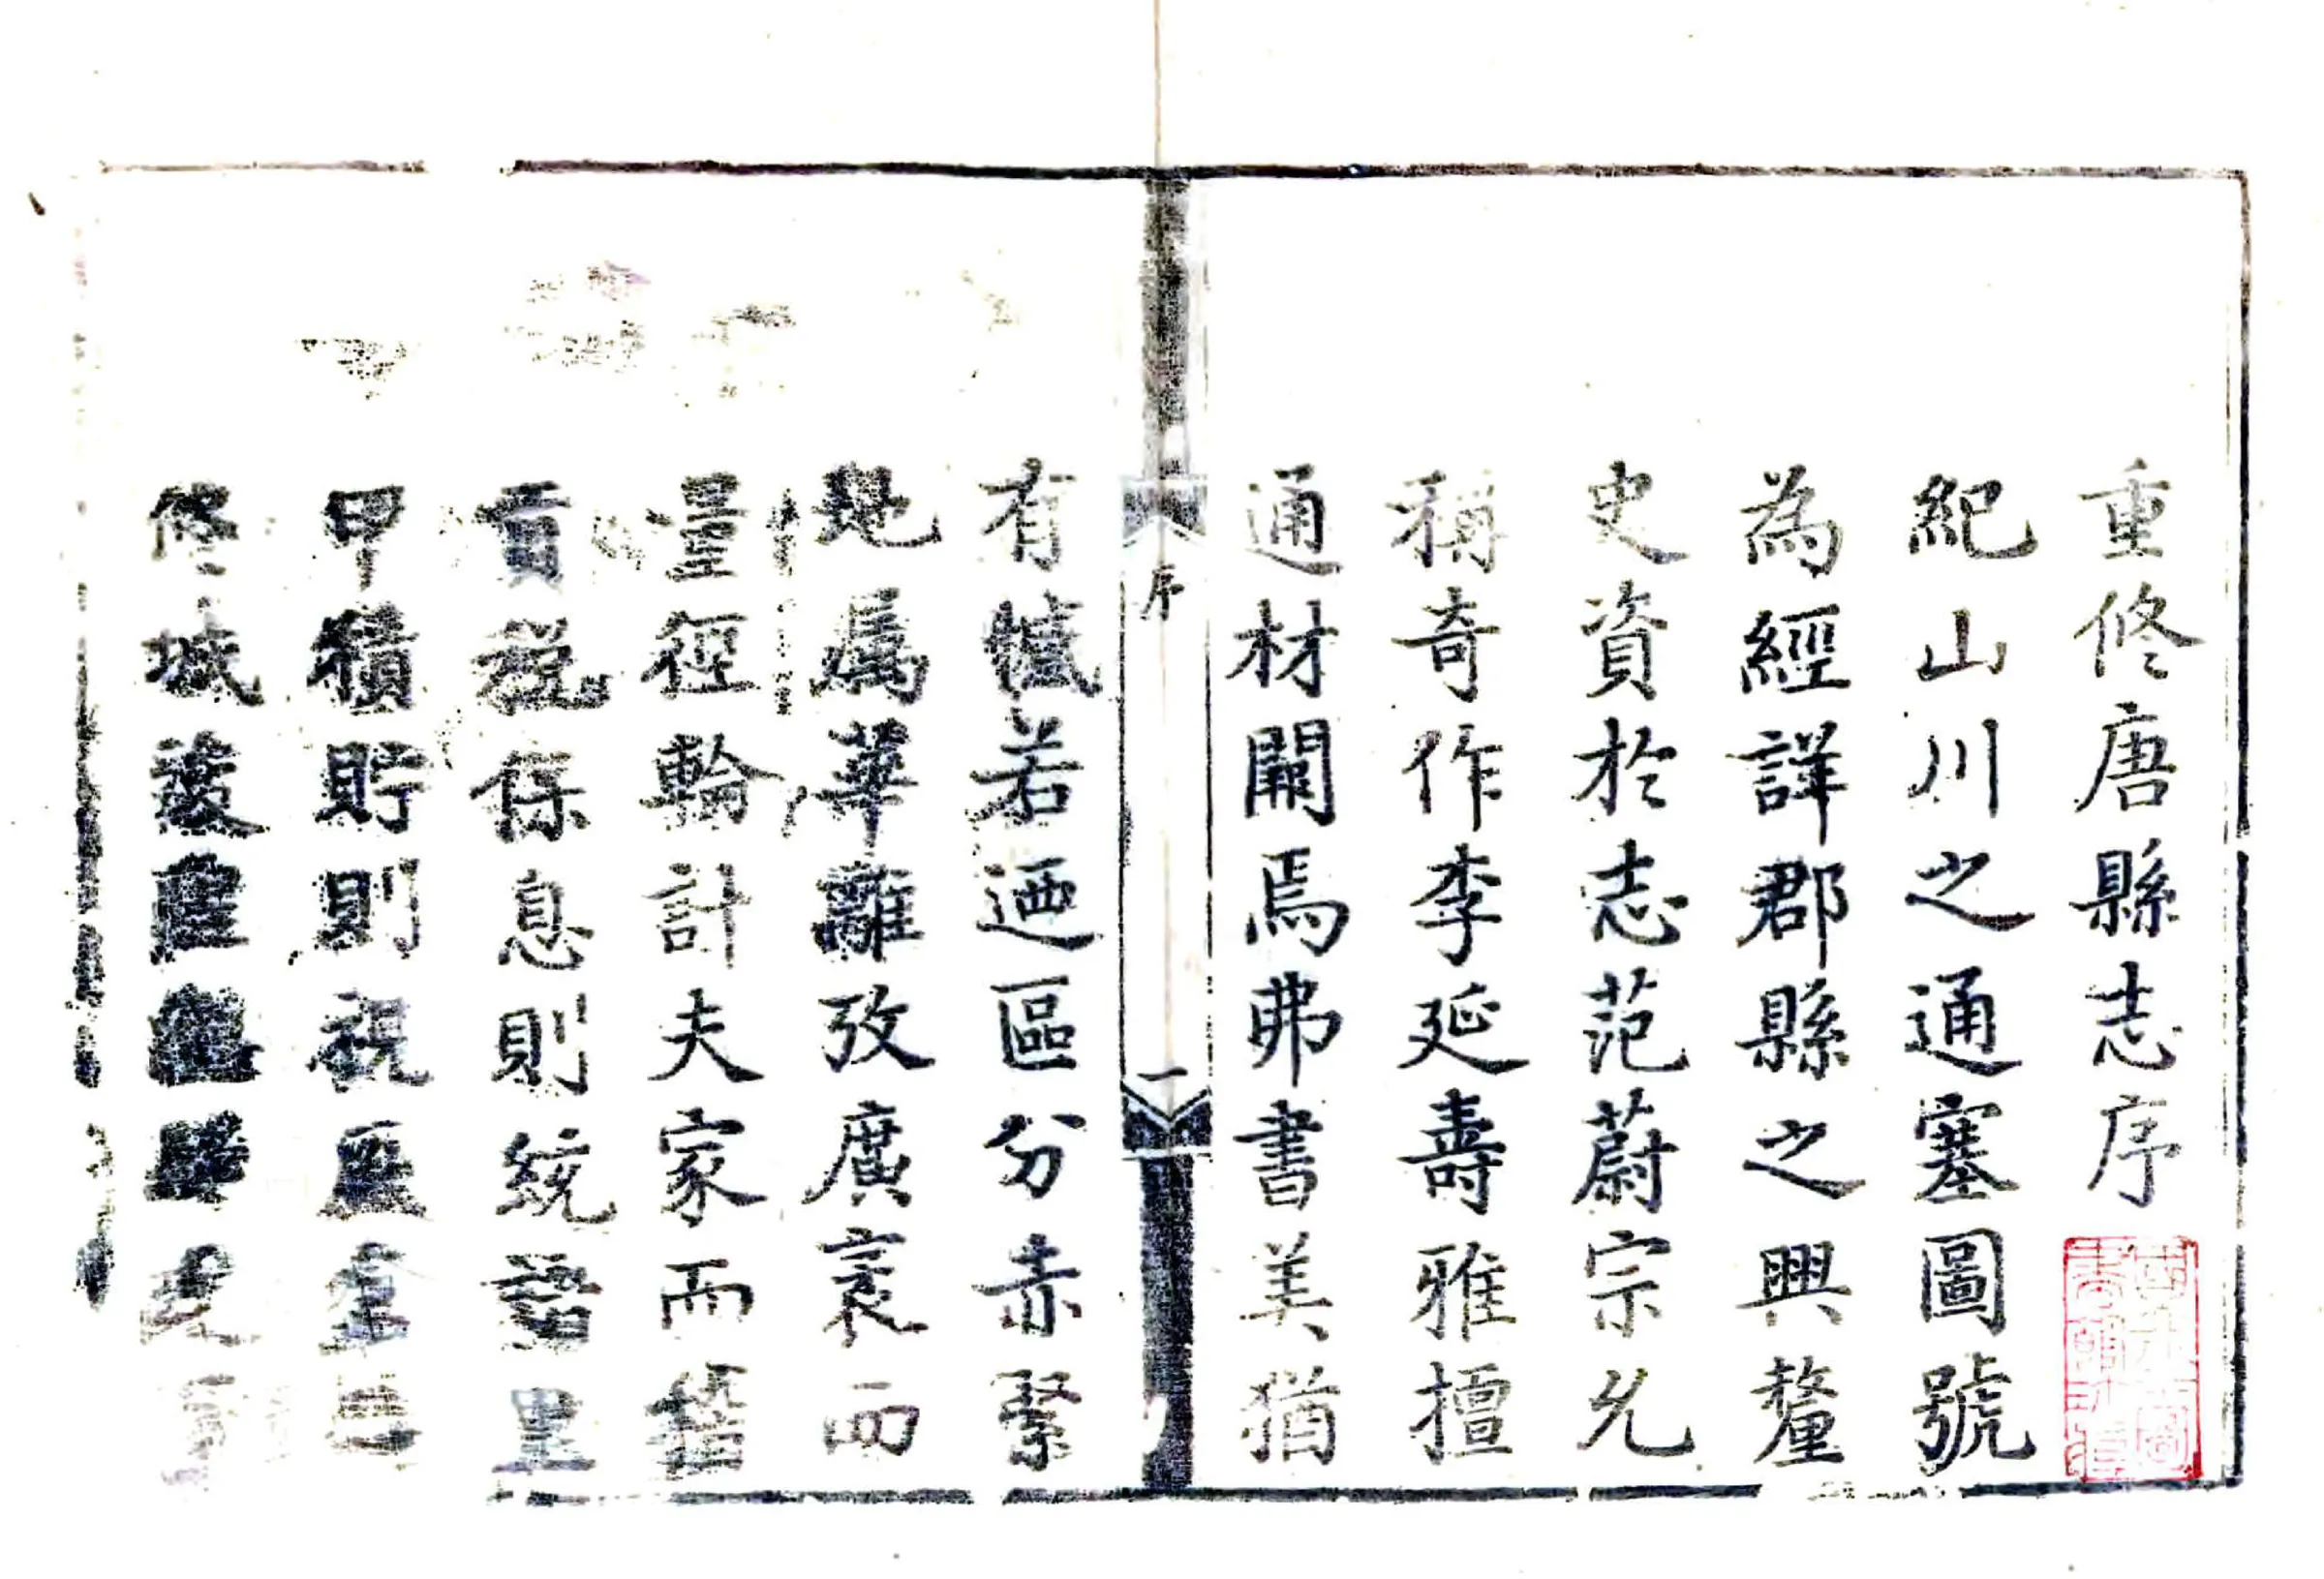 重修唐縣志序
紀山川之通塞圖號
為經詳郡縣之興釐
史資於志范蔚宗允
稱奇作李延壽雅擅
通材闕焉弗書美猶
序
一
有憾若迺區分赤緊
地属華離攷廣袤而
量徑輪計夫家而
貢稅保息則統諸里
甲積貯則視
修城